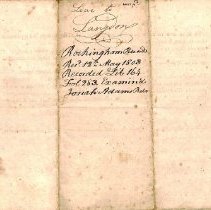 Lear to
Langdon
Rockingham
Rec. 12th May 1803
Recorded Lib 164
Fol. 253. Examin'd
Josiah Adams